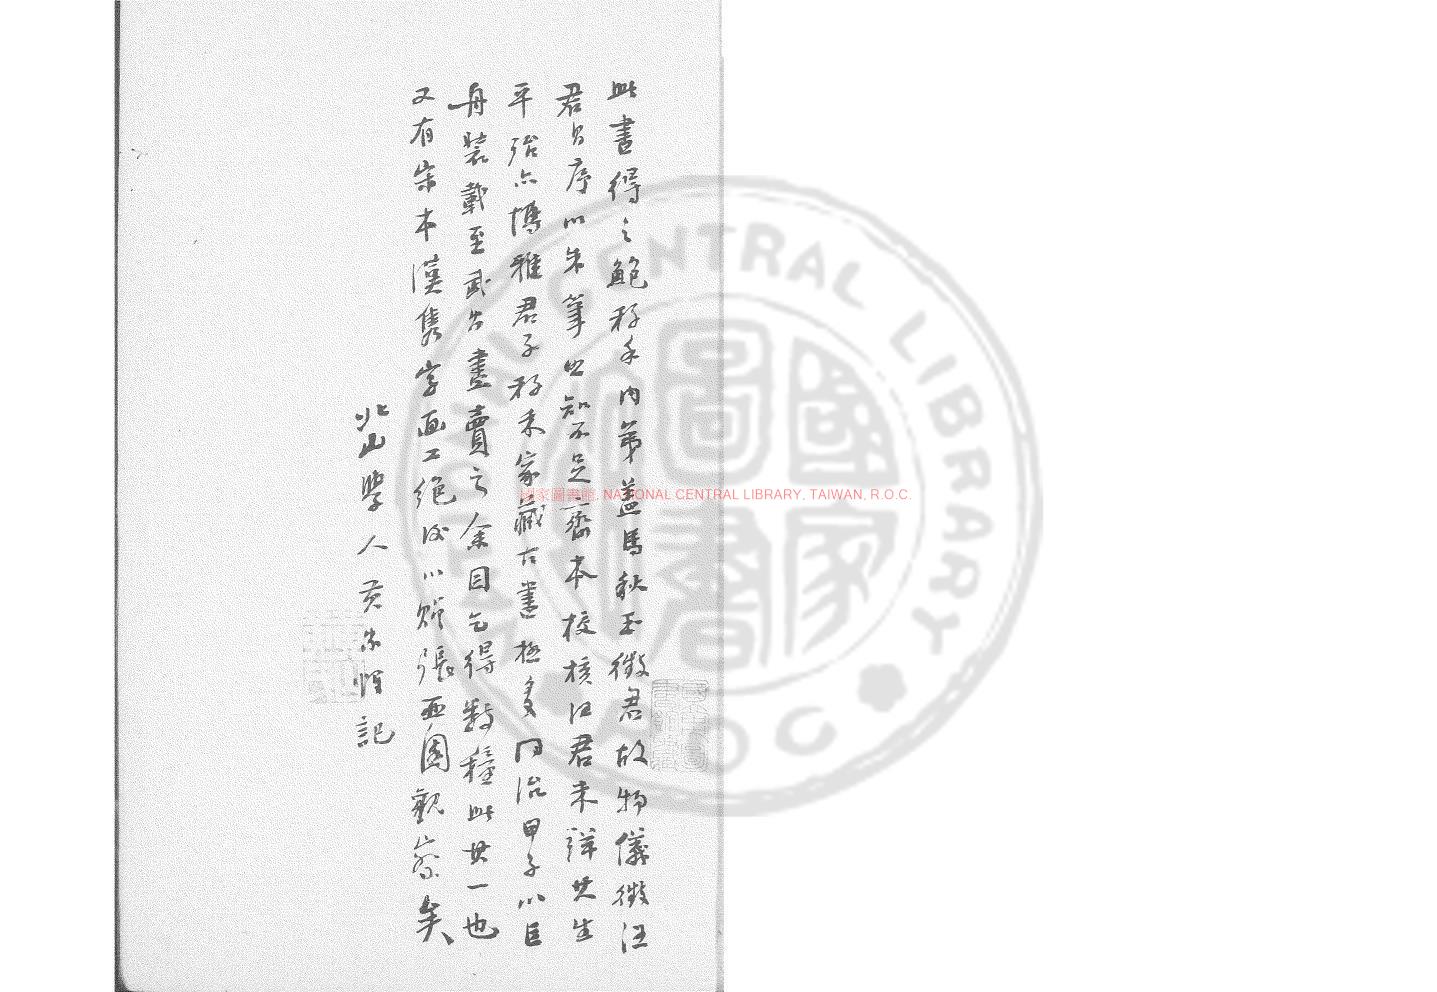 此書得之鮑叔年內弟葢馬秋玉徵君故物儀徵汪
君自序以朱筆照知不足齋本校核汪君未詳其生
平殆亦博雅君子叔未家藏古書極多同治甲子以巨
舟裝載至武昌盡賣之余因乞得數種此其一也
又有宋本漢雋字画工絕後以贈張亜園觀察矣
北山學人黃 記
國家圖書館, NATIONAL CENTRAL LIBRARY, TAIWAN, R.O.C.
NATIONAL CENTRAL LIBRARY
ROC
國家圖書